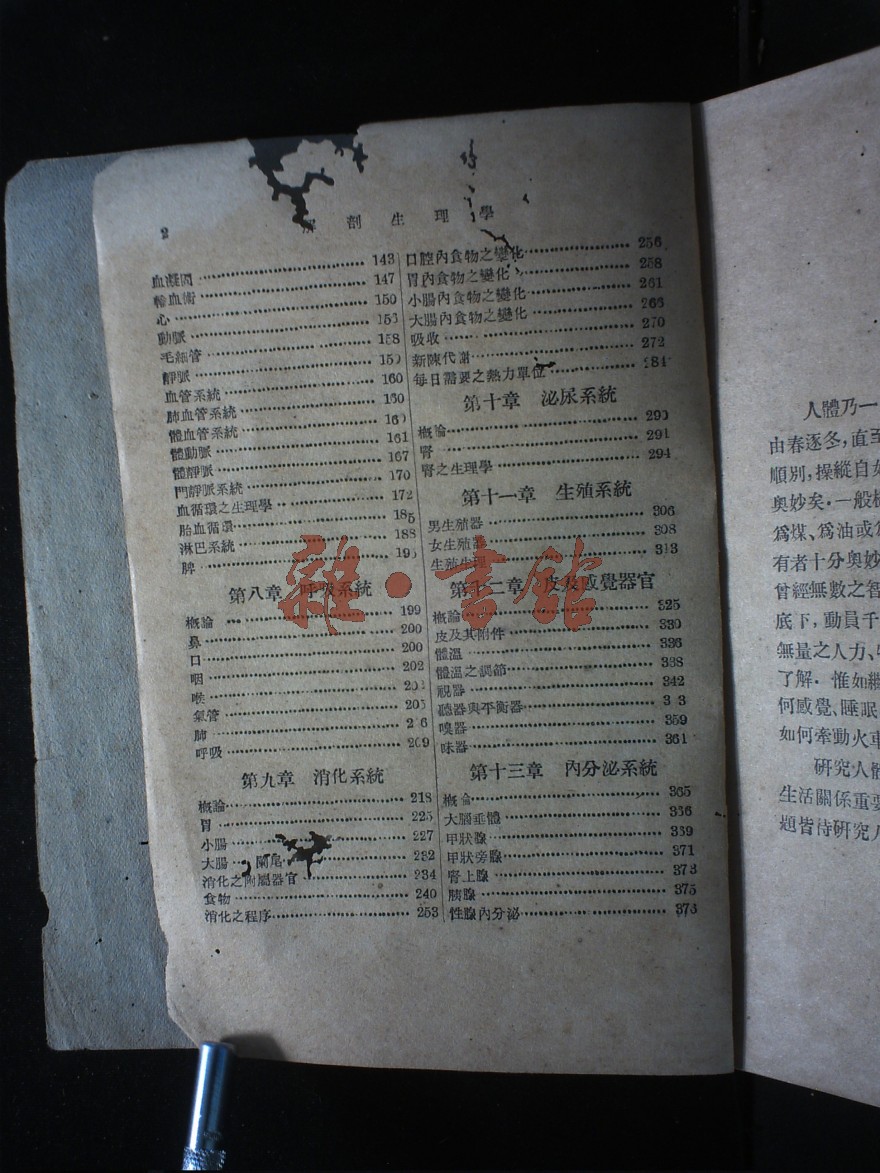 2
剖生理學
血凝固 143
輸血術 147
心 150
動脈 153
毛細管 158
靜脈
血管系統 160
肺血管系統 160
體血管系統
體動脈 161
體靜脈 167
門靜脈系統 170
血循環之生理學 172
胎血循環 185
淋巴系統 188
脾
第八章 呼吸系統
概論 199
鼻 200
口 200
咽 202
喉
氣管 205
肺
呼吸 209
第九章 消化系統
概論 218
胃 225
小腸 227
大腸 闌尾 232
消化之附屬器官 234
食物 240
消化之程序 253
口腔內食物之變化 256
胃內食物之變化 258
小腸內食物之變化 261
大腸內食物之變化 266
吸收 270
新陳代謝 272
每日需要之熱力單位 284
第十章 泌尿系統
概論 290
腎 291
腎之生理學 294
第十一章 生殖系統
男生殖器 306
女生殖器 308
生殖生理 313
第十二章 皮及感覺器官
概論 325
皮及其附件 330
體溫 336
體溫之調節 338
視器 342
聽器與平衡器
嗅器 359
味器 361
第十三章 內分泌系統
概論 365
大腦垂體 366
甲狀腺 369
甲狀旁腺 371
腎上腺 373
胰腺 375
性腺內分泌 376
雜·書館
人體乃一
由春逐冬，直至
順別，操縱自女
奧妙矣．一般機
爲煤、爲油或爲
有者十分奧妙
曾經無數之智
底下，動員千
無量之人力、
了解．惟如繼
何感覺、睡眠
如何牽動火車
研究人體
生活關係重要
題皆待研究